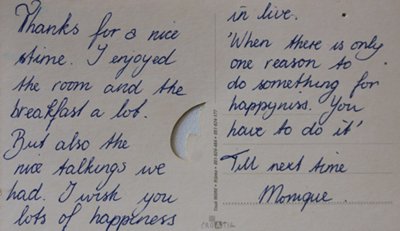 Thanks for a nice
stime. I enjoyed
the room and the
breakfast a lot.
But also the
nice talkings we
had. I wish you
lots of happiness
in live.
'When there is only
one reason to
do something for
happyniss. You
have to do it'
Till next time
Monique.